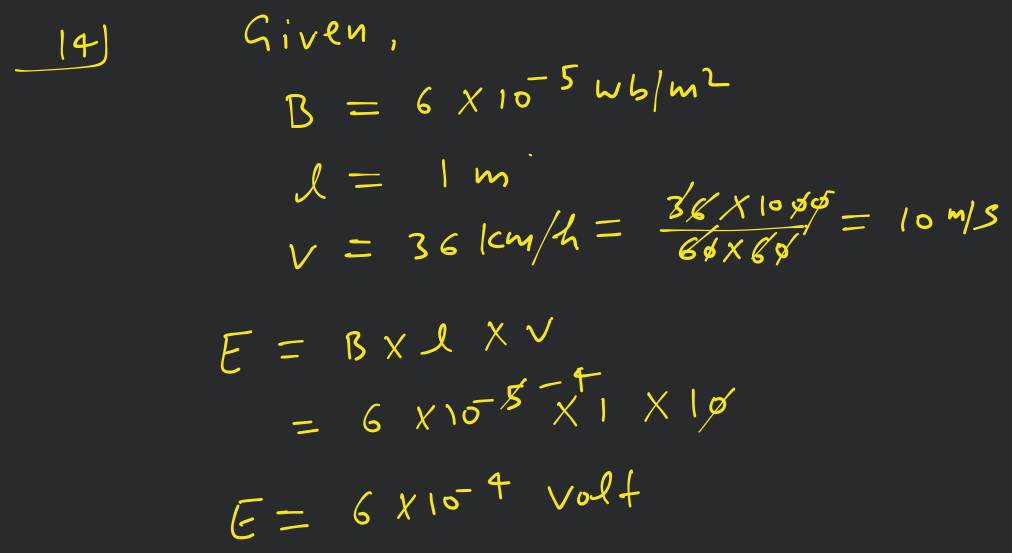 14) Given,
B = 6 × 10⁻⁵ wb/m²
l = 1 m
v = 36 km/h = 36 × 1000 / 60 × 60 = 10 m/s
E = B × l × v
= 6 × 10⁻⁵ ⁻⁴ × 1 × 10
E = 6 × 10⁻⁴ volt